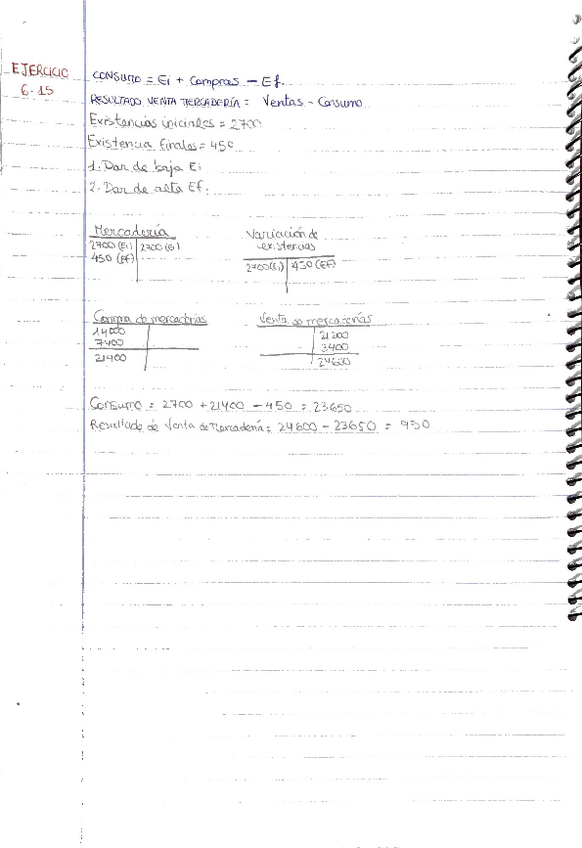 EJERCICIO
6.15
CONSUMO = Ei + Compras - Ef.
RESULTADO VENTA MERCADERÍA = Ventas - Consumo
Existencias iniciales = 2700
Existencia finales = 450
1. Dar de baja Ei
2. Dar de alta Ef.
Mercadería
2700 (Ei) 2700 (Ei)
450 (Ef)
Variación de
existencias
2700 (Ei) 450 (Ef)
Compra de mercaderías
14000
7400
21400
Venta de mercaderías
21200
3400
24600
Consumo = 2700 + 21400 - 450 = 23650
Resultado de Venta de Mercadería = 24600 - 23650 = 950